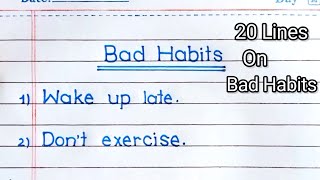 Date: Day
Bad Habits
20 Lines
On
Bad Habits
1) Wake up late.
2) Don't exercise.